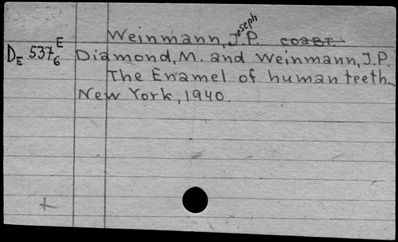 Weinmann, Joseph P. coавт.
D_E 537 E/6 Diamond, M. and Weinmann, J.P.
The Enamel of human teeth.
New York, 1940.
+